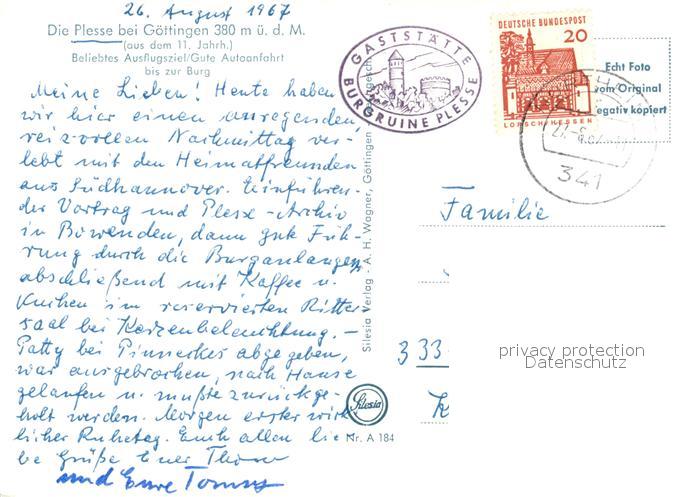 26. August 1967
Die Plesse bei Göttingen 380 m ü. d. M.
(aus dem 11. Jahrh.)
Beliebtes Ausflugsziel/Gute Autoanfahrt
bis zur Burg
Meine Lieben! Heute haben
wir hier einen anregenden,
reizvollen Nachmittag ver-
lebt mit den Heimatfreunden
aus Südhannover. Einführen-
der Vortrag und Plesse-Archiv
in Bovenden, dann gute Füh-
rung durch die Burganlangen,
abschließend mit Kaffee u.
Kuchen im reservierten Ritter-
saal bei Kerzenbeleuchtung. –
Patty bei abgegeben,
war ausgebrochen, nach Hause
gelaufen u. mußte zurückge-
holt werden. Morgen erster wirk-
licher Ruhetag. Euch allen lie-
be Grüße Euer
und Eure
GASTSTÄTTE
BURGRUINE PLESSE
Silesia Verlag - A. H. Wagner, Göttingen
Silesia
Nr. A 184
DEUTSCHE BUNDESPOST
20
LORSCH/HESSEN
Echt Foto
vom Original
negativ kopiert
341
Familie
3 33
K
privacy protection
Datenschutz